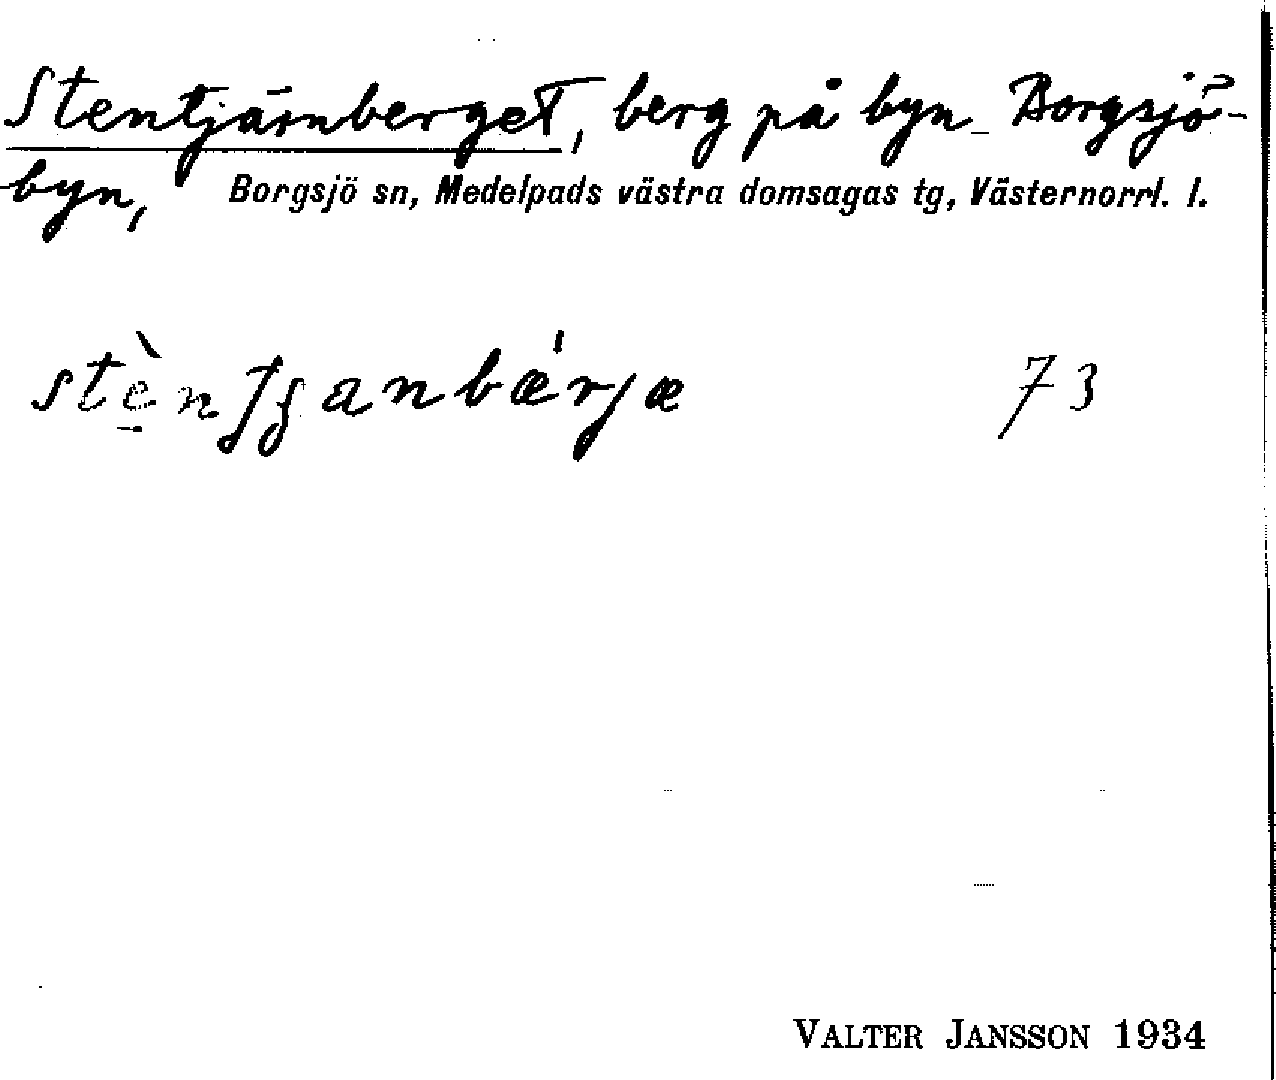 Stentjärnberget, berg på byn Borgsjö-
byn, Borgsjö sn, Medelpads västra domsagas tg, Västernorrl. l.
73
VALTER JANSSON 1934